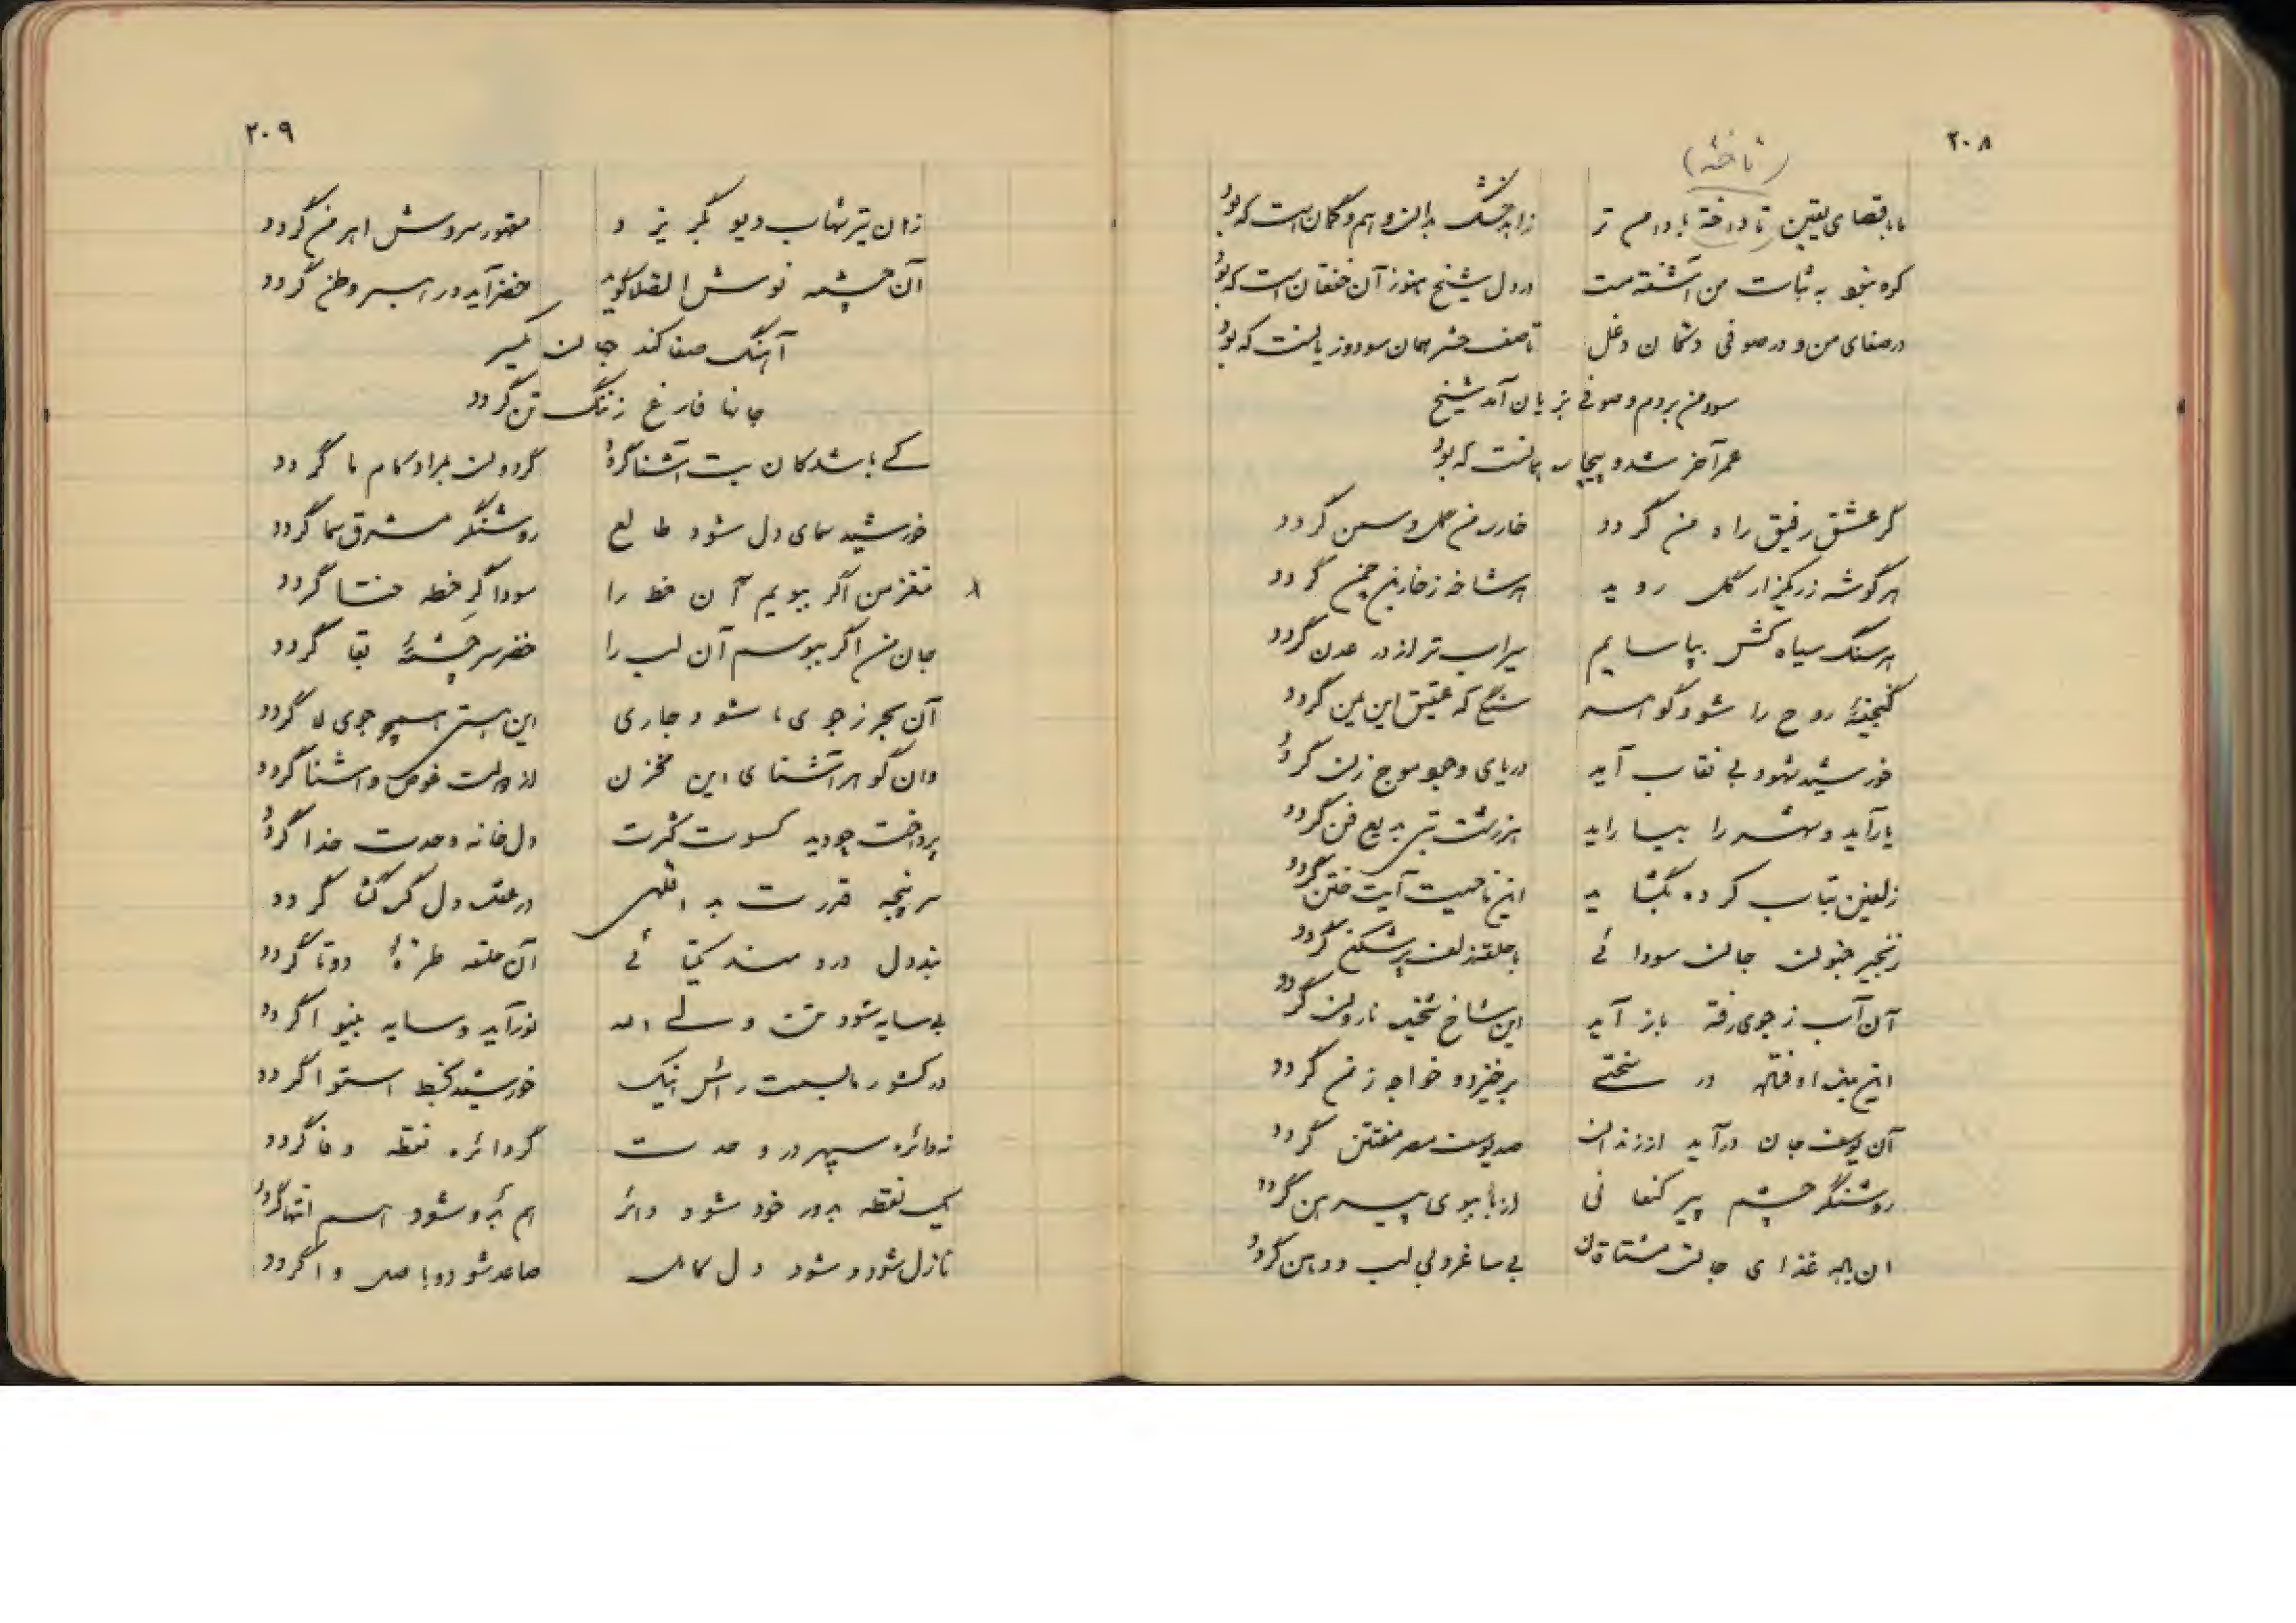 ۲۰۸
(تاخته)
ما باقصای یقین تاخته با دامن تر زاهد خشک بدان وهم و گمان است که بود
کوه بیخود به ثبات من آشفته مست در دل شیخ هنوز آن خفقان است که بود
در صفای من و در صوفی دکان دغل تا صف حشر همان سود و زیانست که بود
سود من بردم و صوفی بزیان آمد شیخ
عمر آخر شد و بیچاره چنانست که بود
گر عشق رفیق راه من گردد خار ره من گل و سمن گردد
هر گوشه ز ریگزار گل روید هر شاخه ز خار بن چمن گردد
هر سنگ سیاه کش بپا سایم سیراب تر از در عدن گردد
گنجینهٔ روح را شود گوهر سنگی که عقیق این یمن گردد
خورشید شهود بی نقاب آید دریای وجود موج زن گردد
یار آید و شهر را بیاراید هر زشت بتی بدیع فن گردد
زلفین بتاب کرده بگشاید این ناحیت آیت ختن گردد
زنجیر جنون جان سودائی با حلقه زلف پر شکن گردد
آن آب ز جوی رفته باز آید این شاخ نارون گردد
این بنده اوفتاده در سختی برخیزد و خواجه زمن گردد
آن یوسف جان درآید از زندان صد یوسف مصر مفتتن گردد
روشنگر چشم پیر کنعانی ارزنده ببوی پیرهن گردد
ان به غذای جان مشتاقان بی ساغر و بی لب و دهن گردد
۲۰۹
زان تیر شهاب دیو بگریزد مقهور سروش اهرمن گردد
آن چشمه نوش الصلا گوید خضر آید و راهبر وطن گردد
آهنگ صفا کند جان یکسر
جانها فارغ ز ننگ تن گردد
کی باشد کان بت آشنا گردد گردون بمراد و کام ما گردد
خورشید سمای دل شود طالع روشنگر مشرق سما گردد
۸ مغز من اگر ببویم آن خط را سوداگر خطه ختا گردد
جان من اگر ببوسم آن لب را خضر سرچشمهٔ بقا گردد
آن بحر ز جوی ما شود جاری این هستی همچو جوی لا گردد
وان گوهر آشنای این مخزن از همت غوص و آشنا گردد
پرداخت چو دید کسوت کثرت دل خانه وحدت خدا گردد
سر پنجه قدرت ید اللهی در عقد دل گره گشا گردد
بند دل دردمند یکتائی آن حلقه طرهٔ دوتا گردد
بی سایه شود مت ولی الله نور آید و سایه بینوا گردد
در کشور ما بسمت رأس اینک خورشید بخط استوا گردد
نه دائره سپهر در وحدت گرد دائره نقطه وفا گردد
یک نقطه بدور خود شود دائر هم بدو شود هم انتها گردد
نازل شود و شود دل کامل صاعد شود و با اصل وا گردد